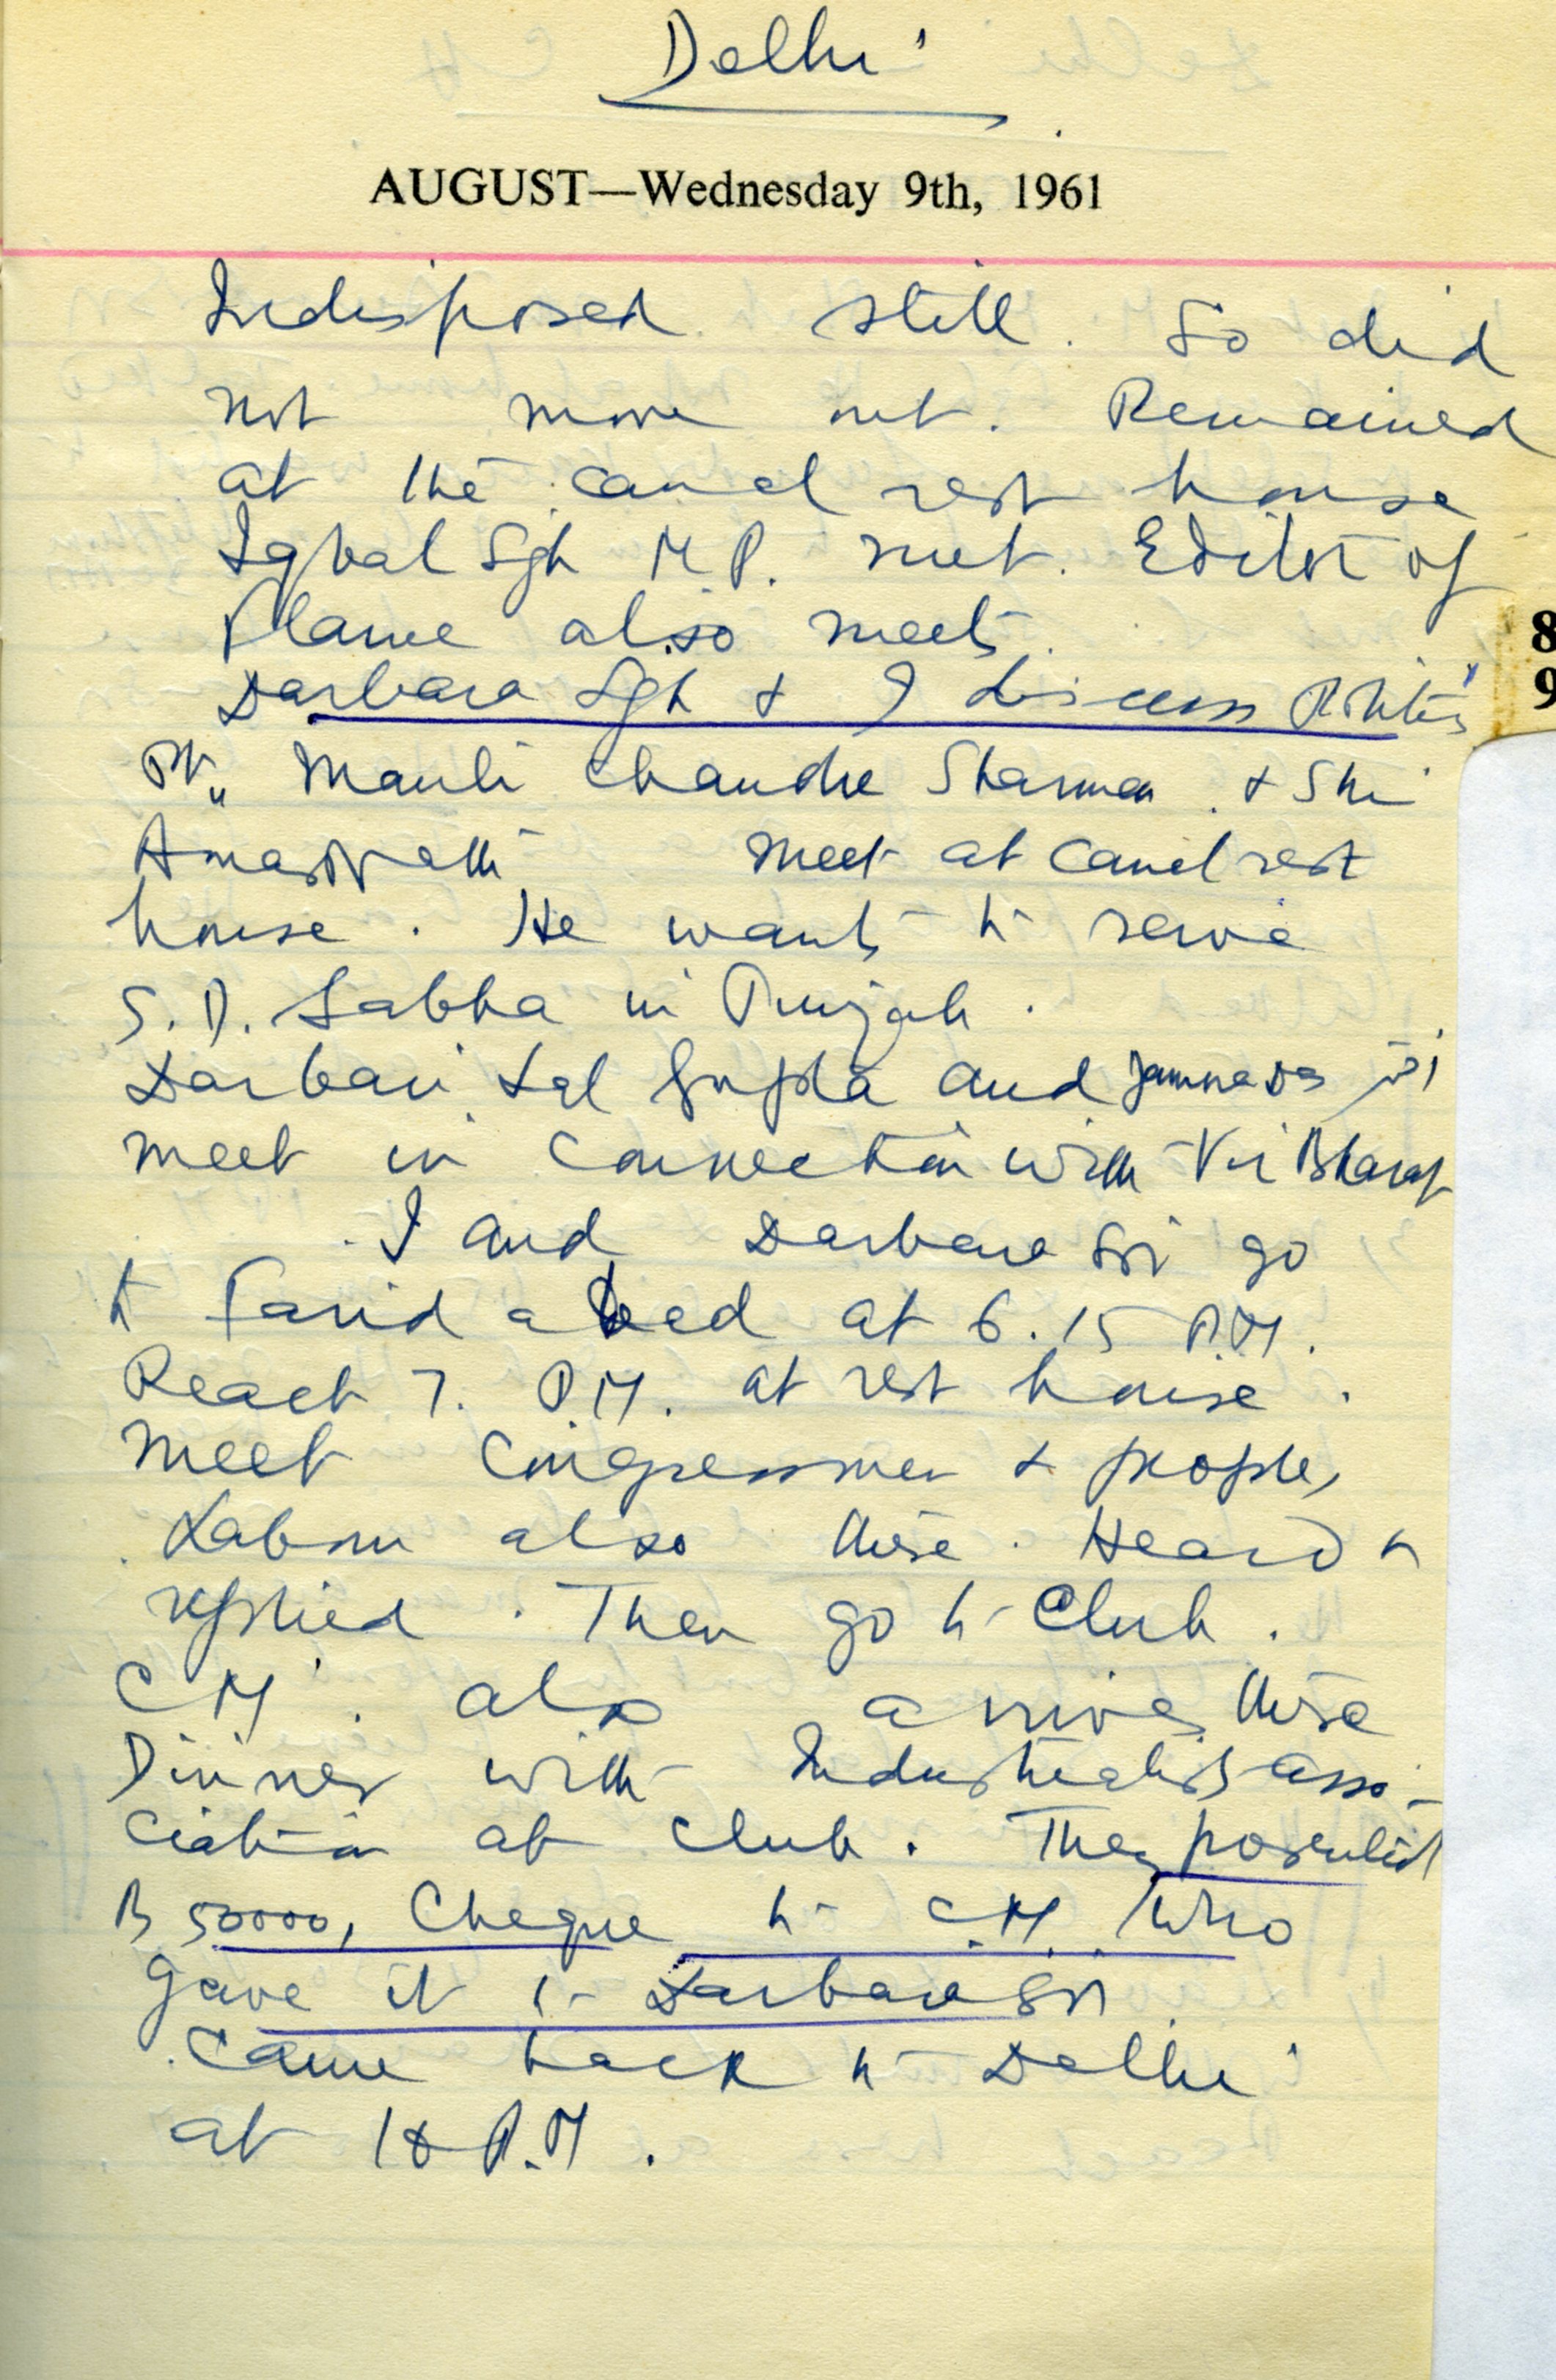 Delhi
AUGUST—Wednesday 9th, 1961
Indisposed still. So did
not move out. Remained
at the canal rest house
Iqbal Sgh M.P. met. Editor of
Flame also meets.
8
Darbara Sgh & I discuss Politics
9
Pt. Mauli Chandra Sharma & Shri
Amar Nath meet at canal rest
house. He wants to serve
S.D. Sabha in Punjab.
Darbari Lal Gupta and Jamna Das
meet in connection with Vir Bharat
I and Darbara go
to Faridabad at 6.15 P.M.
Reach 7. P.M. at rest house.
meet Congressmen & people,
Labour also there. Heard &
replied. Then go to Club.
C.M. also arrives there
Dinner with Industrialists asso-
ciation at club. They
Rs 50000, Cheque to C.M. who
gave it to Darbara
Came back to Delhi
at P.M.